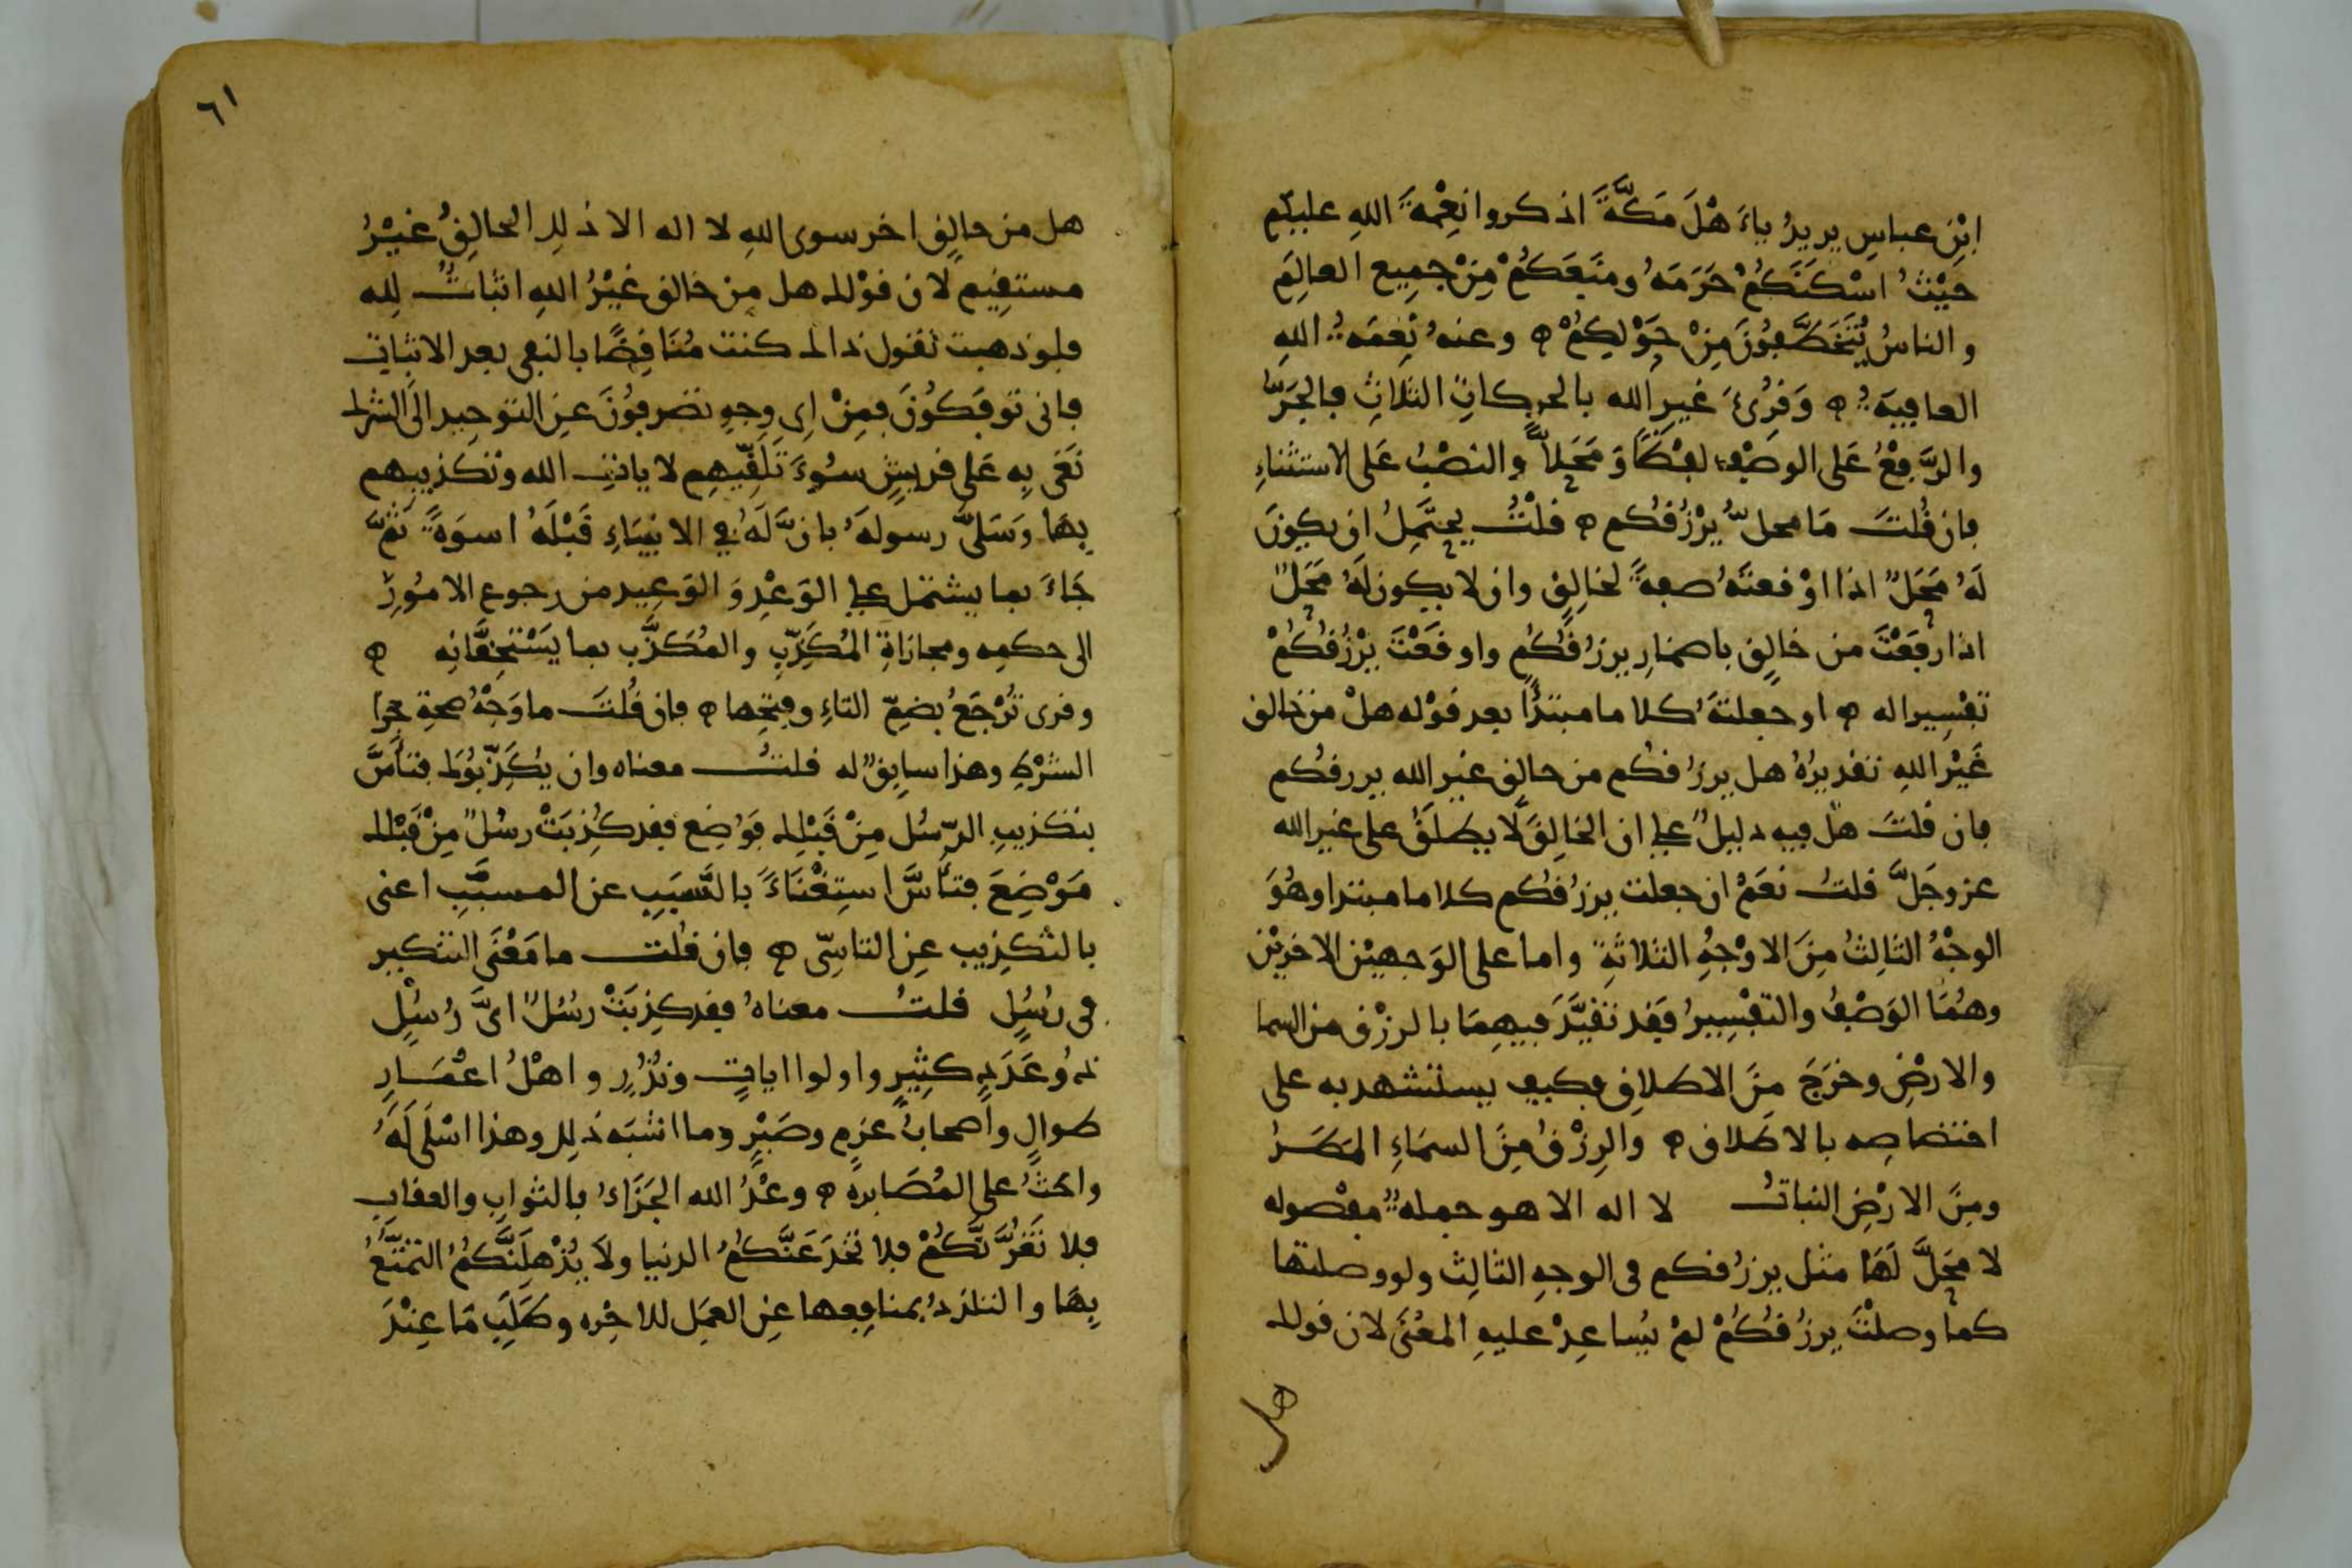 ابن عباس يريد ياء هل مكة اذكروا نعمة الله عليكم
حيث اسكنكم حرمه ومنعكم من جميع العالم
والناس يتخطفون من حولكم ه وعنه نعمة الله
العافية ه وقرئ غير الله بالحركات الثلاث فالجر
والرفع على الوصف لفظا ومحلا والنصب على لاستثناء
فان قلت ما محل يرزقكم ه قلت يحتمل ان يكون
له محل اذا اوقعته صفة لخالق وان لا يكون له محل
اذا رفعت من خالق باضمار يرزقكم واوقعت يرزقكم
تفسيرا له ه او جعلته كلاما مبتدأ بعد قوله هل من خالق
غير الله تقديره هل يرزقكم من خالق غير الله يرزقكم
فان قلت هل فيه دليل على ان الخالق لا يطلق على غير الله
عز وجل قلت نعم ان جعلت يرزقكم كلاما مبتدا وهو
الوجه الثالث من الاوجه الثلاثة واما على الوجهين الاخرين
وهما الوصف والتفسير فقد تقيد فيهما بالرزق من السما
والارض وخرج من الاطلاق فكيف يستشهد به على
اختصاصه بالاطلاق ه والرزق من السماء المطر
ومن الارض النبات لا اله الا هو جملة مفصوله
لا محل لها مثل يرزقكم فى الوجه الثالث ولو وصلتها
كما وصلت يرزقكم لم يساعد عليه المعنى لان قولك
هل
٦١
هل من خالق اخر سوى الله لا اله الا ذلك الخالق غير
مستقيم لان قولك هل من خالق غير الله اثبات لله
فلو ذهبت تقول ذالك كنت مناقضا بالنفى بعد الاثبات
فانى توفكون فمن اى وجه تصرفون عن التوحيد الى الشرك
نعى به على قريش سوء تلقيهم لايات الله وتكذيبهم
بها وسلى رسوله بان له فى الانبياء قبله اسوة ثم
جاء بما يشتمل على الوعد والوعيد من رجوع الامور
الى حكمه ومجازاة المكذب والمكذب بما يستحقانه ه
وقرى ترجع بضم التاء وفتحها ه فان قلت ما وجه صحة جزا
الشرط وهذا سابق له قلت معناه وان يكذبوك فتأس
بتكذيب الرسل من قبلك فوضع فقد كذبت رسل من قبلك
موضع فتأس استغناء بالسبب عن المسبب اعنى
بالتكذيب عن التاسى ه فان قلت ما معنى التنكير
فى رسل قلت معناه فقد كذبت رسل اى رسل
ذوو عدد كثير واولوا ايات ونذر واهل اعمار
طوال واصحاب عزم وصبر وما اشبه ذلك وهذا اسلى له
واحث على المصابرة ه وعد الله الجزاء بالثواب والعقاب
فلا تغرنكم فلا تخدعنكم الدنيا ولا يذهلنكم التمتع
بها والتلذذ بمنافعها عن العمل للاخره وطلب ما عند